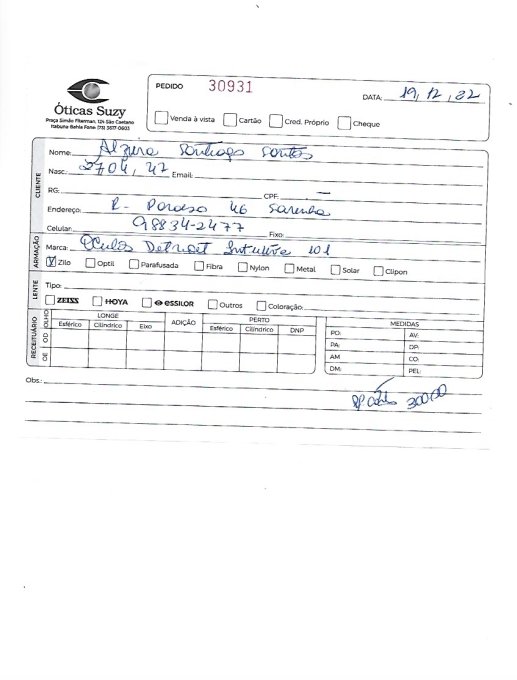 Óticas Suzy
Praça Simão Fiterman, 124 São Caetano
Itabuna Bahia Fone: (73) 3617-0603
PEDIDO 30931
DATA: 19, 12, 22
Venda à vista Cartão Cred. Próprio Cheque
CLIENTE
Nome: Alzira Santiago Santos
Nasc.: 27 04, 47 Email:
RG: CPF: —
Endereço: R- 46
Celular: 98834-2477 Fixo:
ARMAÇÃO
Marca: Oculos Detroit Intuitive 101
Zilo Optil Parafusada Fibra Nylon Metal Solar Clipon
LENTE
Tipo:
ZEISS HOYA essilor Outros Coloração:
RECEITUÁRIO
OLHO LONGE ADIÇÃO PERTO MEDIDAS
Esférico Cilíndrico Eixo Esférico Cilíndrico DNP
OD
OE
PO: AV:
PA: DP:
AM CO:
DM: PEL:
Obs.:
300.00